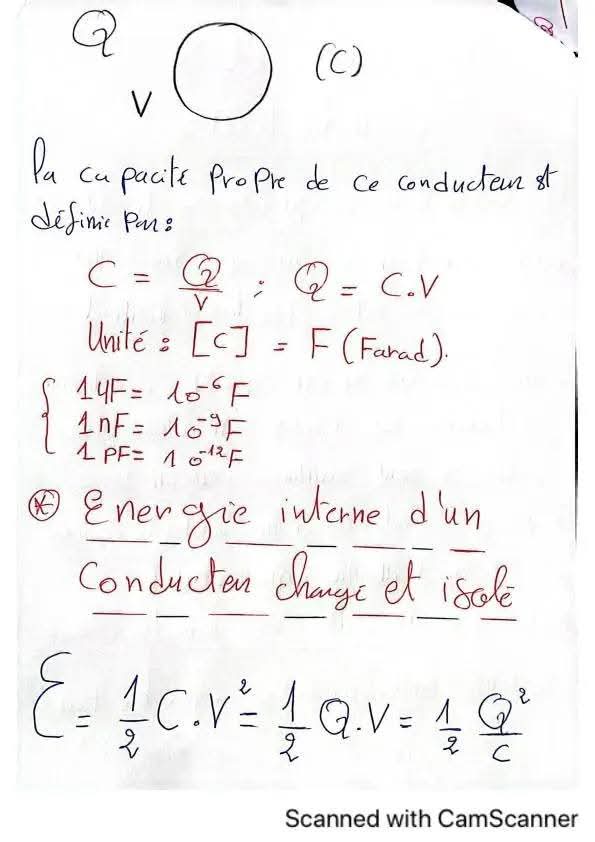 Q
V
(C)
la capacité Propre de ce conducteur est
définie par:
C = Q/V ; Q = C.V
Unité : [C] = F (Farad).
1 μF = 10⁻⁶ F
1 nF = 10⁻⁹ F
1 PF = 10⁻¹² F
Energie interne d'un
Conducteur chargé et isolé
Ɛ = 1/2 C.V² = 1/2 Q.V = 1/2 Q²/C
Scanned with CamScanner